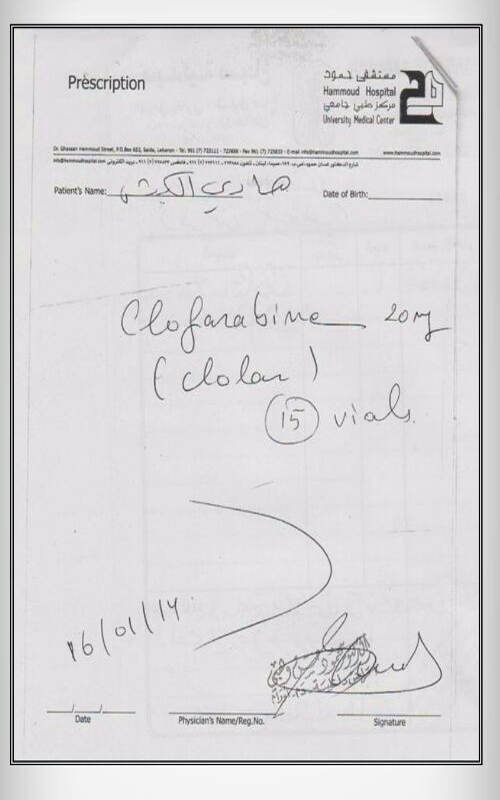 Prescription
مستشفى حمود
Hammoud Hospital
مركز طبي جامعي
University Medical Center
Dr. Ghassan Hammoud Street, P.O.Box 652, Saida, Lebanon - Tel. 961 (7) 723111 - 723888 - Fax 961 (7) 725833 - E-mail info@hammoudhospital.com www.hammoudhospital.com
Patient's Name: هادي الكبش
Date of Birth:
Clofarabine 20mg
(clolar)
15 vials.
16/01/14
Date
Physician's Name/Reg.No.
Signature